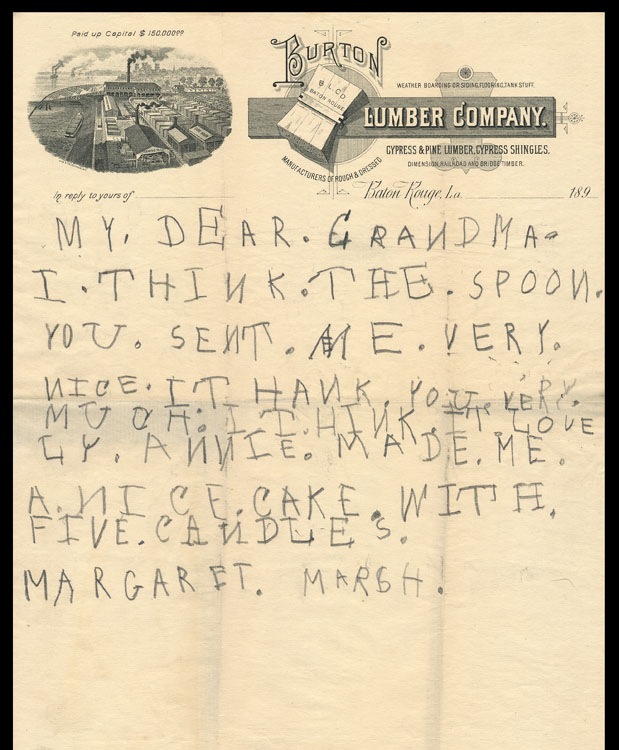 Paid up Capital $ 150.000⁰⁰
BURTON
B.L.CO
BATON ROUGE
WEATHER BOARDING OR SIDING, FLOORING, TANK STUFF.
LUMBER COMPANY.
CYPRESS & PINE LUMBER, CYPRESS SHINGLES.
MANUFACTURERS OF ROUGH & DRESSED
DIMENSION, RAILROAD AND BRIDGE TIMBER.
In reply to yours of
Baton Rouge, La. 189
MY. DEAR. GRANDMA.
I. THINK. THE. SPOON.
YOU. SENT. ME. VERY.
NICE. I THANK. YOU. VERY.
MUCH. I THINK. IT. LOVE
LY. ANNIE. MADE. ME.
A. NICE. CAKE. WITH.
FIVE. CANDLES.
MARGARET. MARSH.